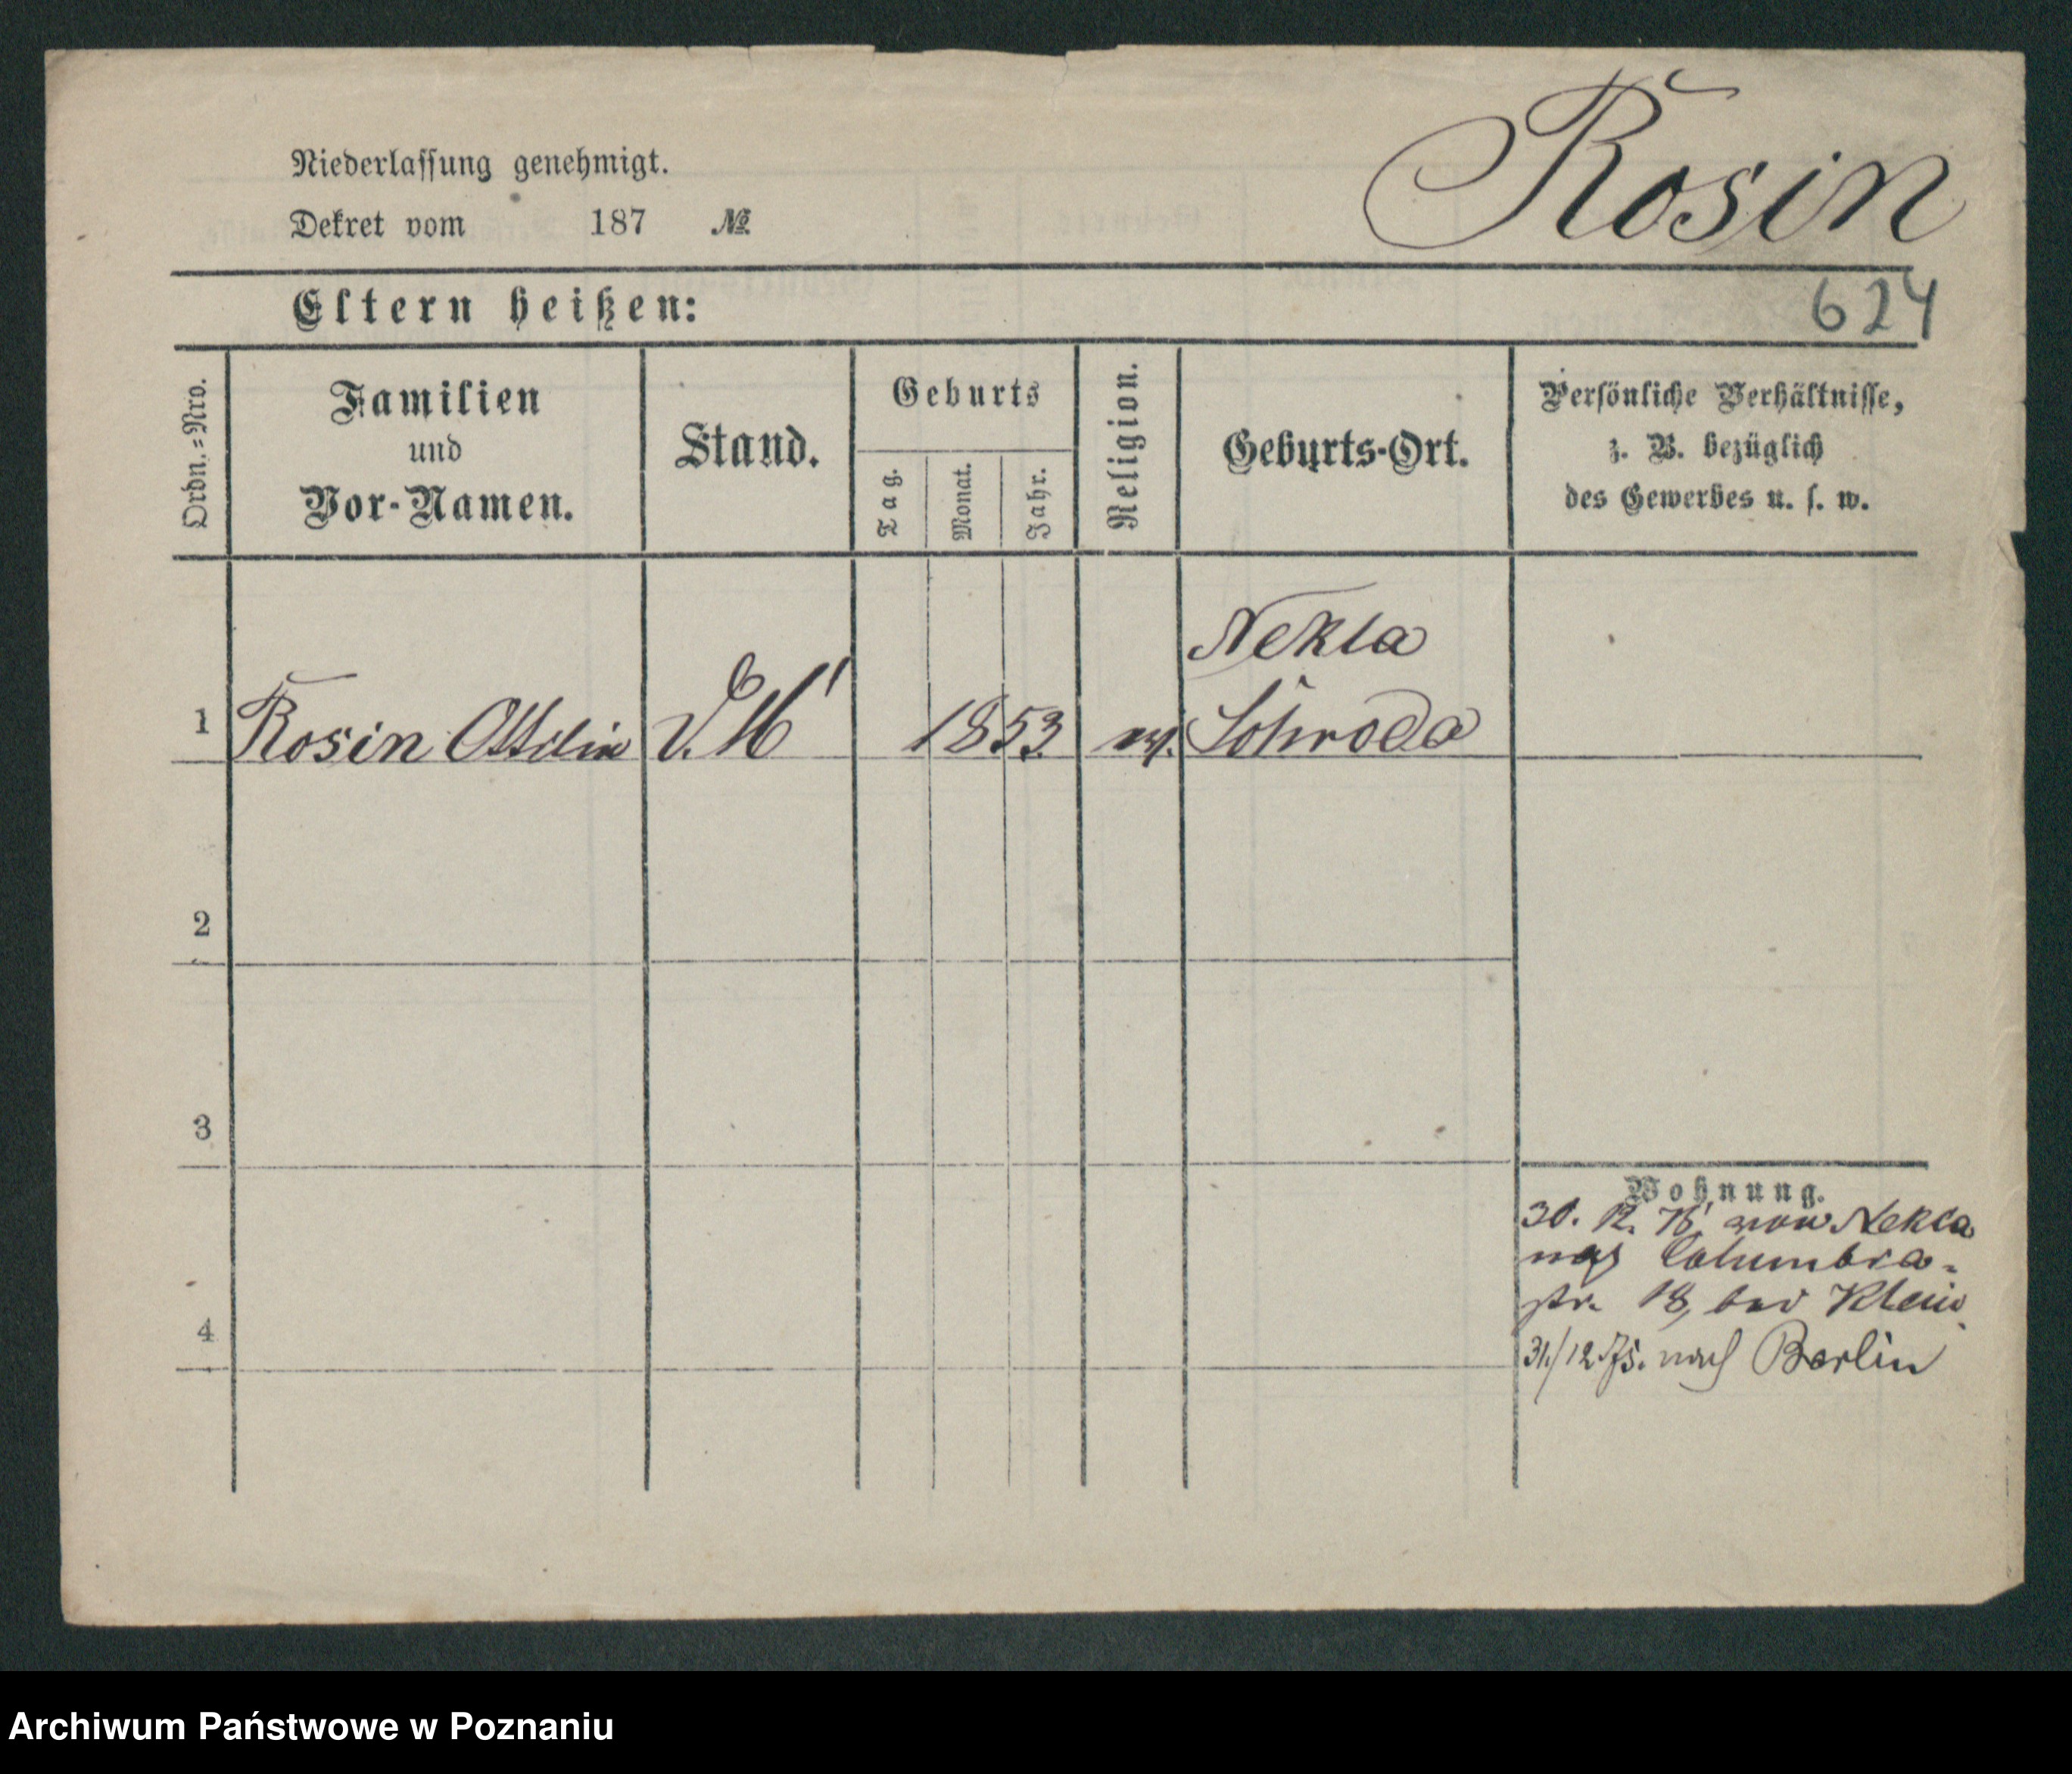 Rosin
Niederlassung genehmigt.
Dekret vom 187 №
624
Eltern heißen:
Ordn.=Nro.
Familien
und
Vor-Namen.
Stand.
Geburts
Tag.
Monat.
Jahr.
Religion.
Geburts-Ort.
Persönliche Verhältnisse,
z. B. bezüglich
des Gewerbes u. s. w.
Nekla
1 Rosin Ottilie 1853 Schroda
2
3
4
Wohnung.
30. 12. von Nekla
nach Columbia-
str. 18, bei Klein
31/12 75. nach Berlin
Archiwum Państwowe w Poznaniu